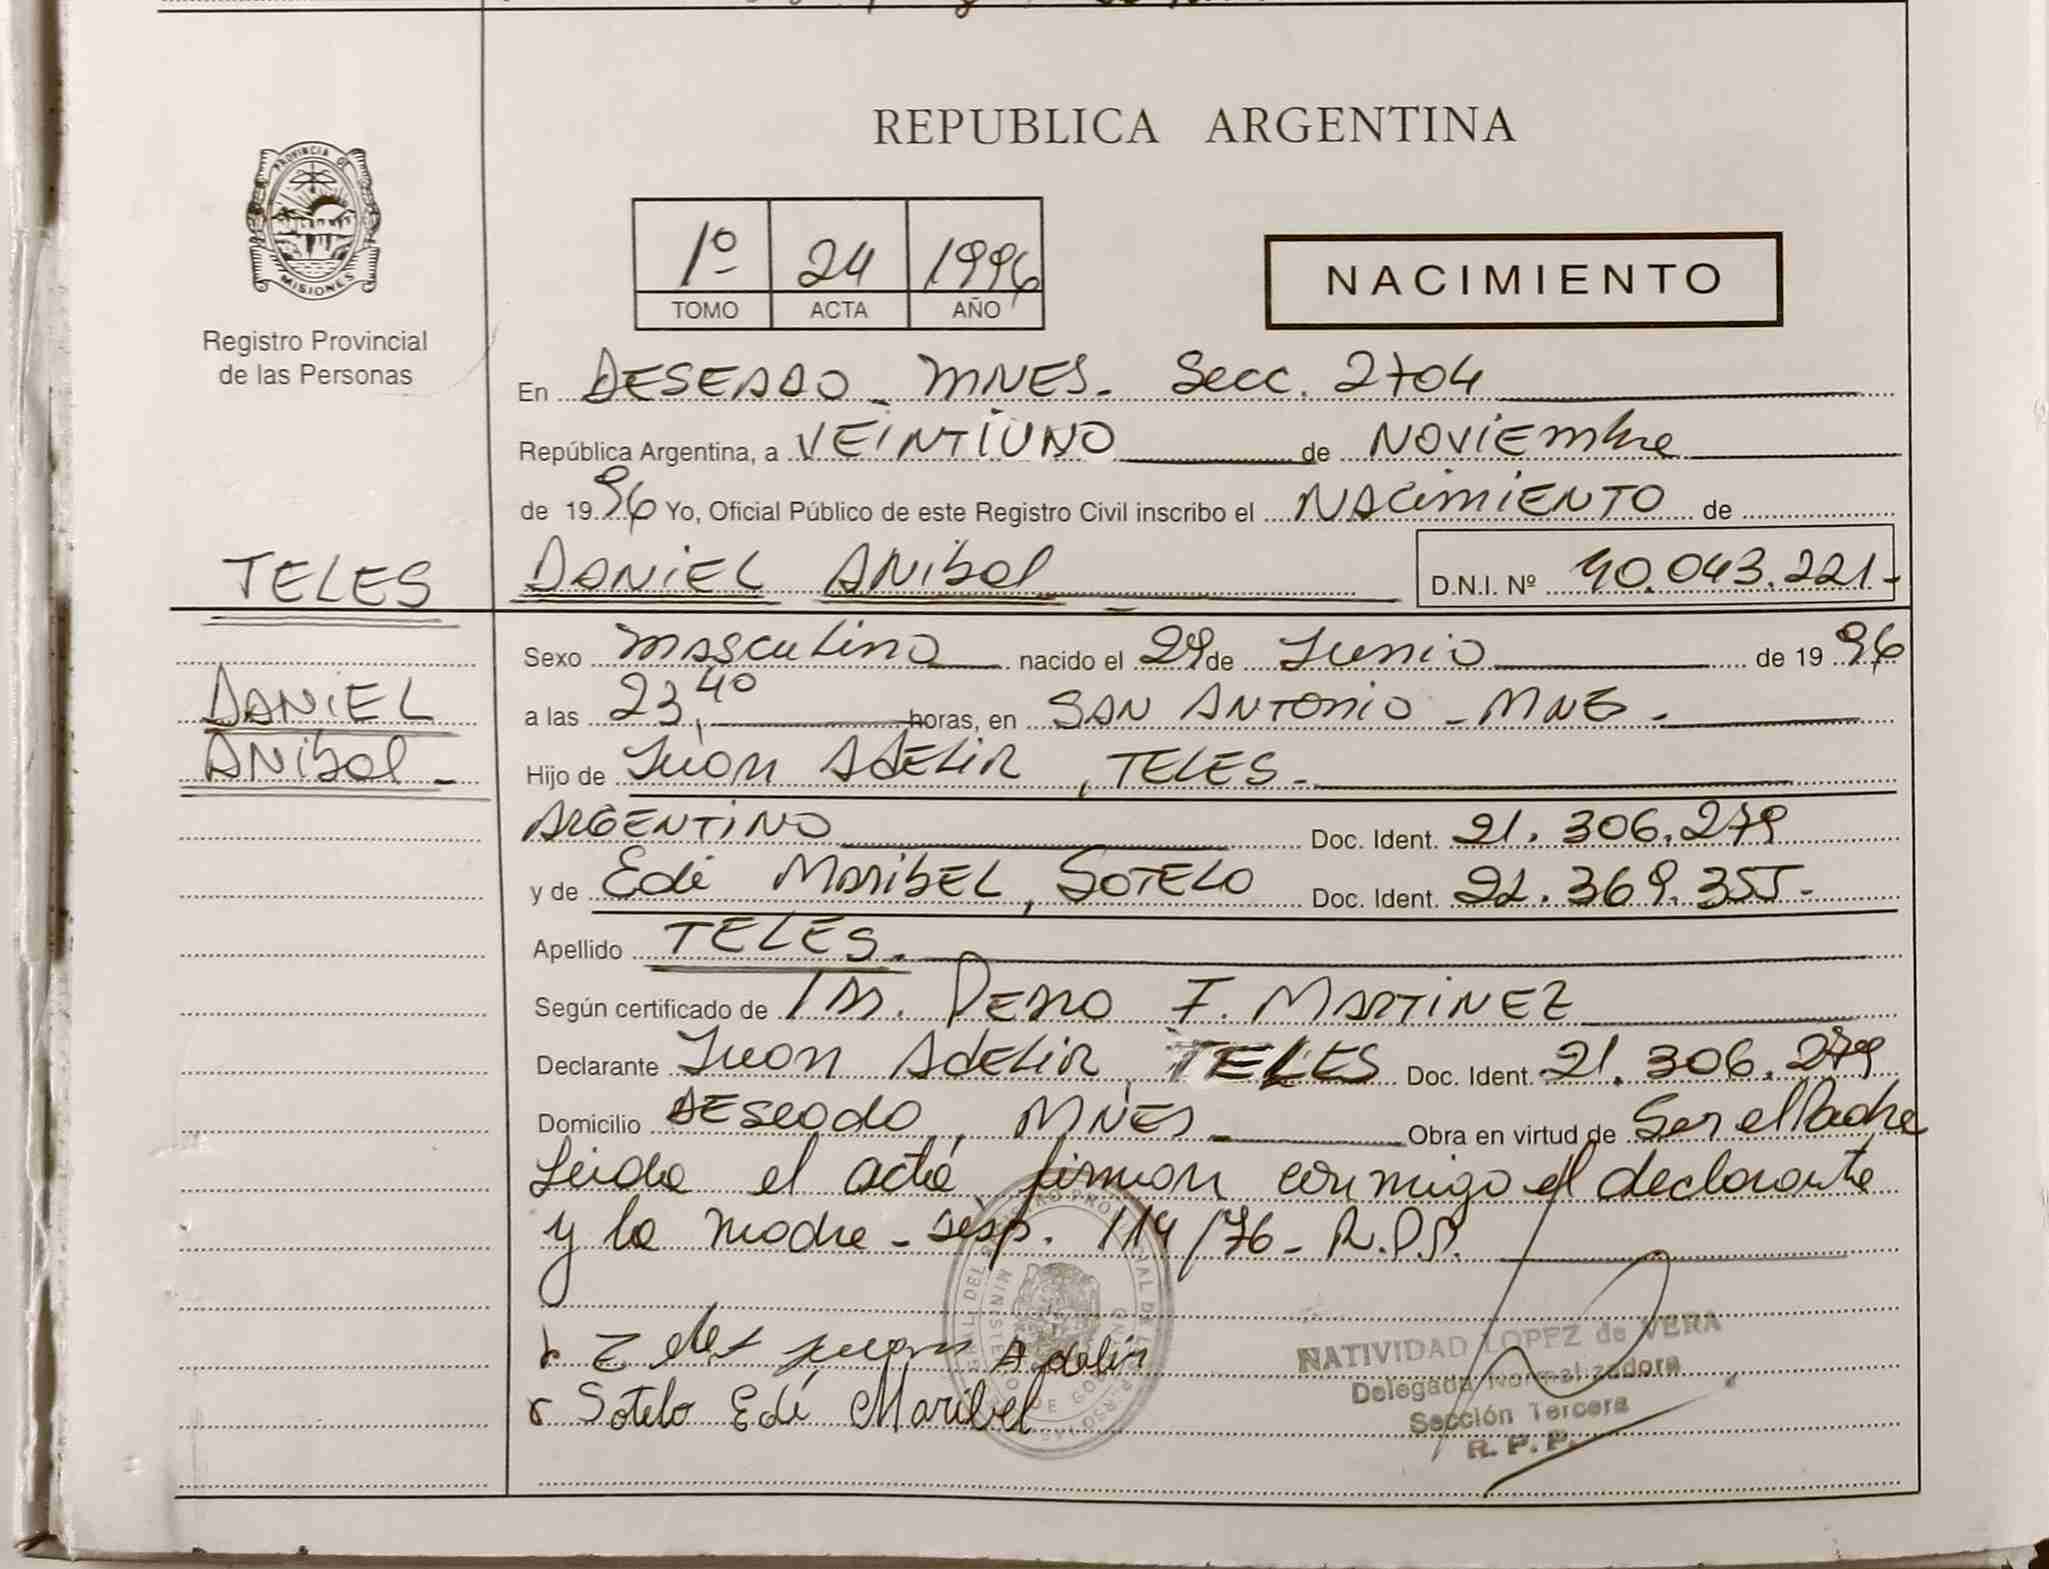 REPUBLICA ARGENTINA
PROVINCIA DE
MISIONES
Registro Provincial
de las Personas
1º 24 1996
TOMO ACTA AÑO
NACIMIENTO
En DESEADO - MNES. Secc. 2704
República Argentina, a VEINTIUNO de NOVIEmbre
de 1996 Yo, Oficial Público de este Registro Civil inscribo el NACimiENTO de
TELES
DANiEL ANibal D.N.I. Nº 40.043.221-
Sexo masculino nacido el 29 de Junio de 1996
DANiEL
a las 23,40 horas, en SAN ANTONIO - MNES -
ANibal -
Hijo de Juan AdELiR, TELES -
ARGENTiNO Doc. Ident. 21.306.279
y de Edi MARibEL, SOTELO Doc. Ident. 22.369.355-
Apellido TELES.
Según certificado de F. MARTINEZ
Declarante Juan AdELiR, TELES Doc. Ident. 21.306.279
Domicilio DEseado, MNES Obra en virtud de Ser el Padre
Leida el acta, firman conmigo el declarante
y la madre - 114/76 - R.P.P.
Juan Adelir
Sotelo Edi Maribel
NATIVIDAD LOPEZ de VERA
Delegada Normalizadora
Sección Tercera
R. P. P.